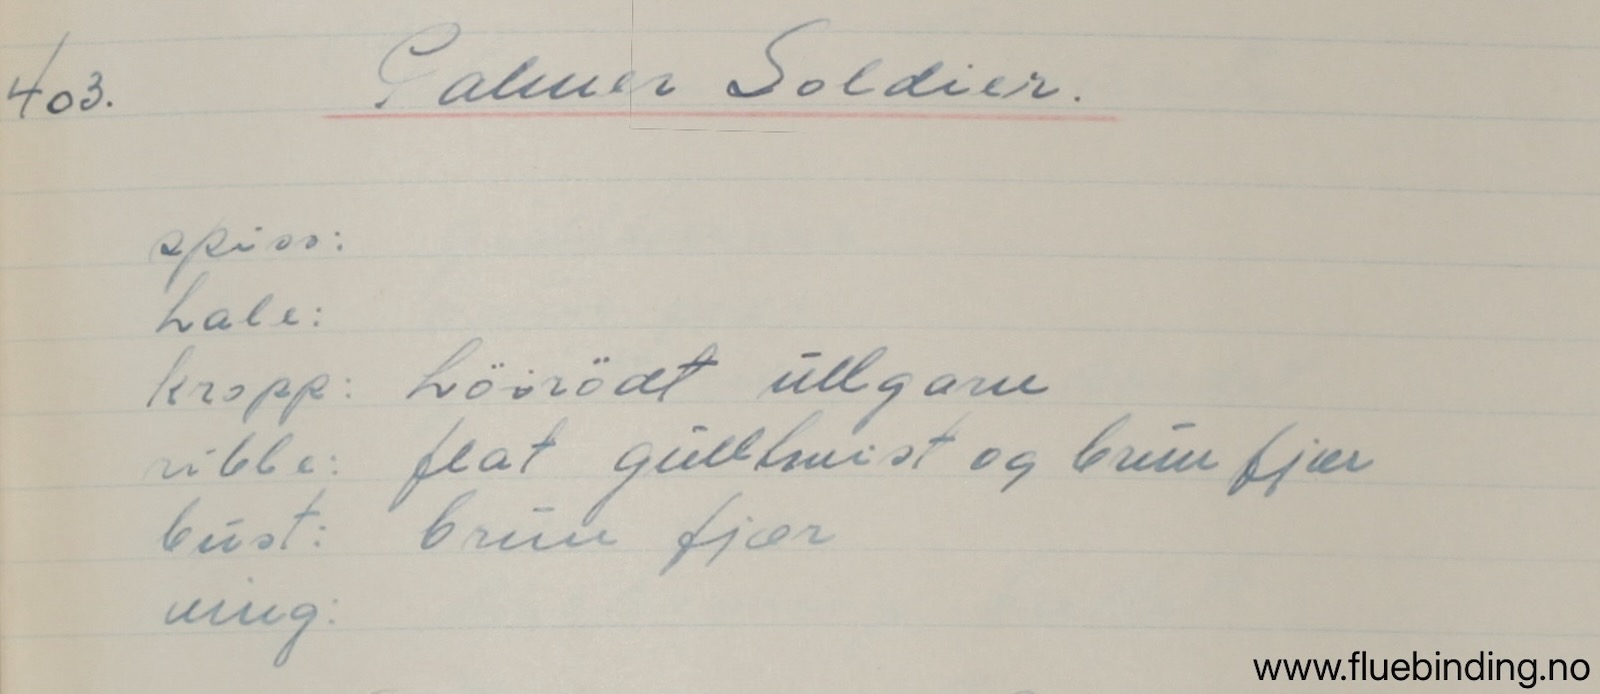 403. Palmer Soldier.
spiss:
hale:
kropp: höirödt ullgarn
ribbe: flat gulltwist og brun fjær
bust: brun fjær
ving:
www.fluebinding.no